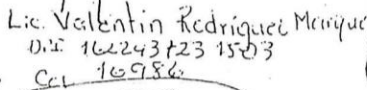 Lic. Valentin Rodríguez Manrique
D.I 102243723 1503
Cel 10986